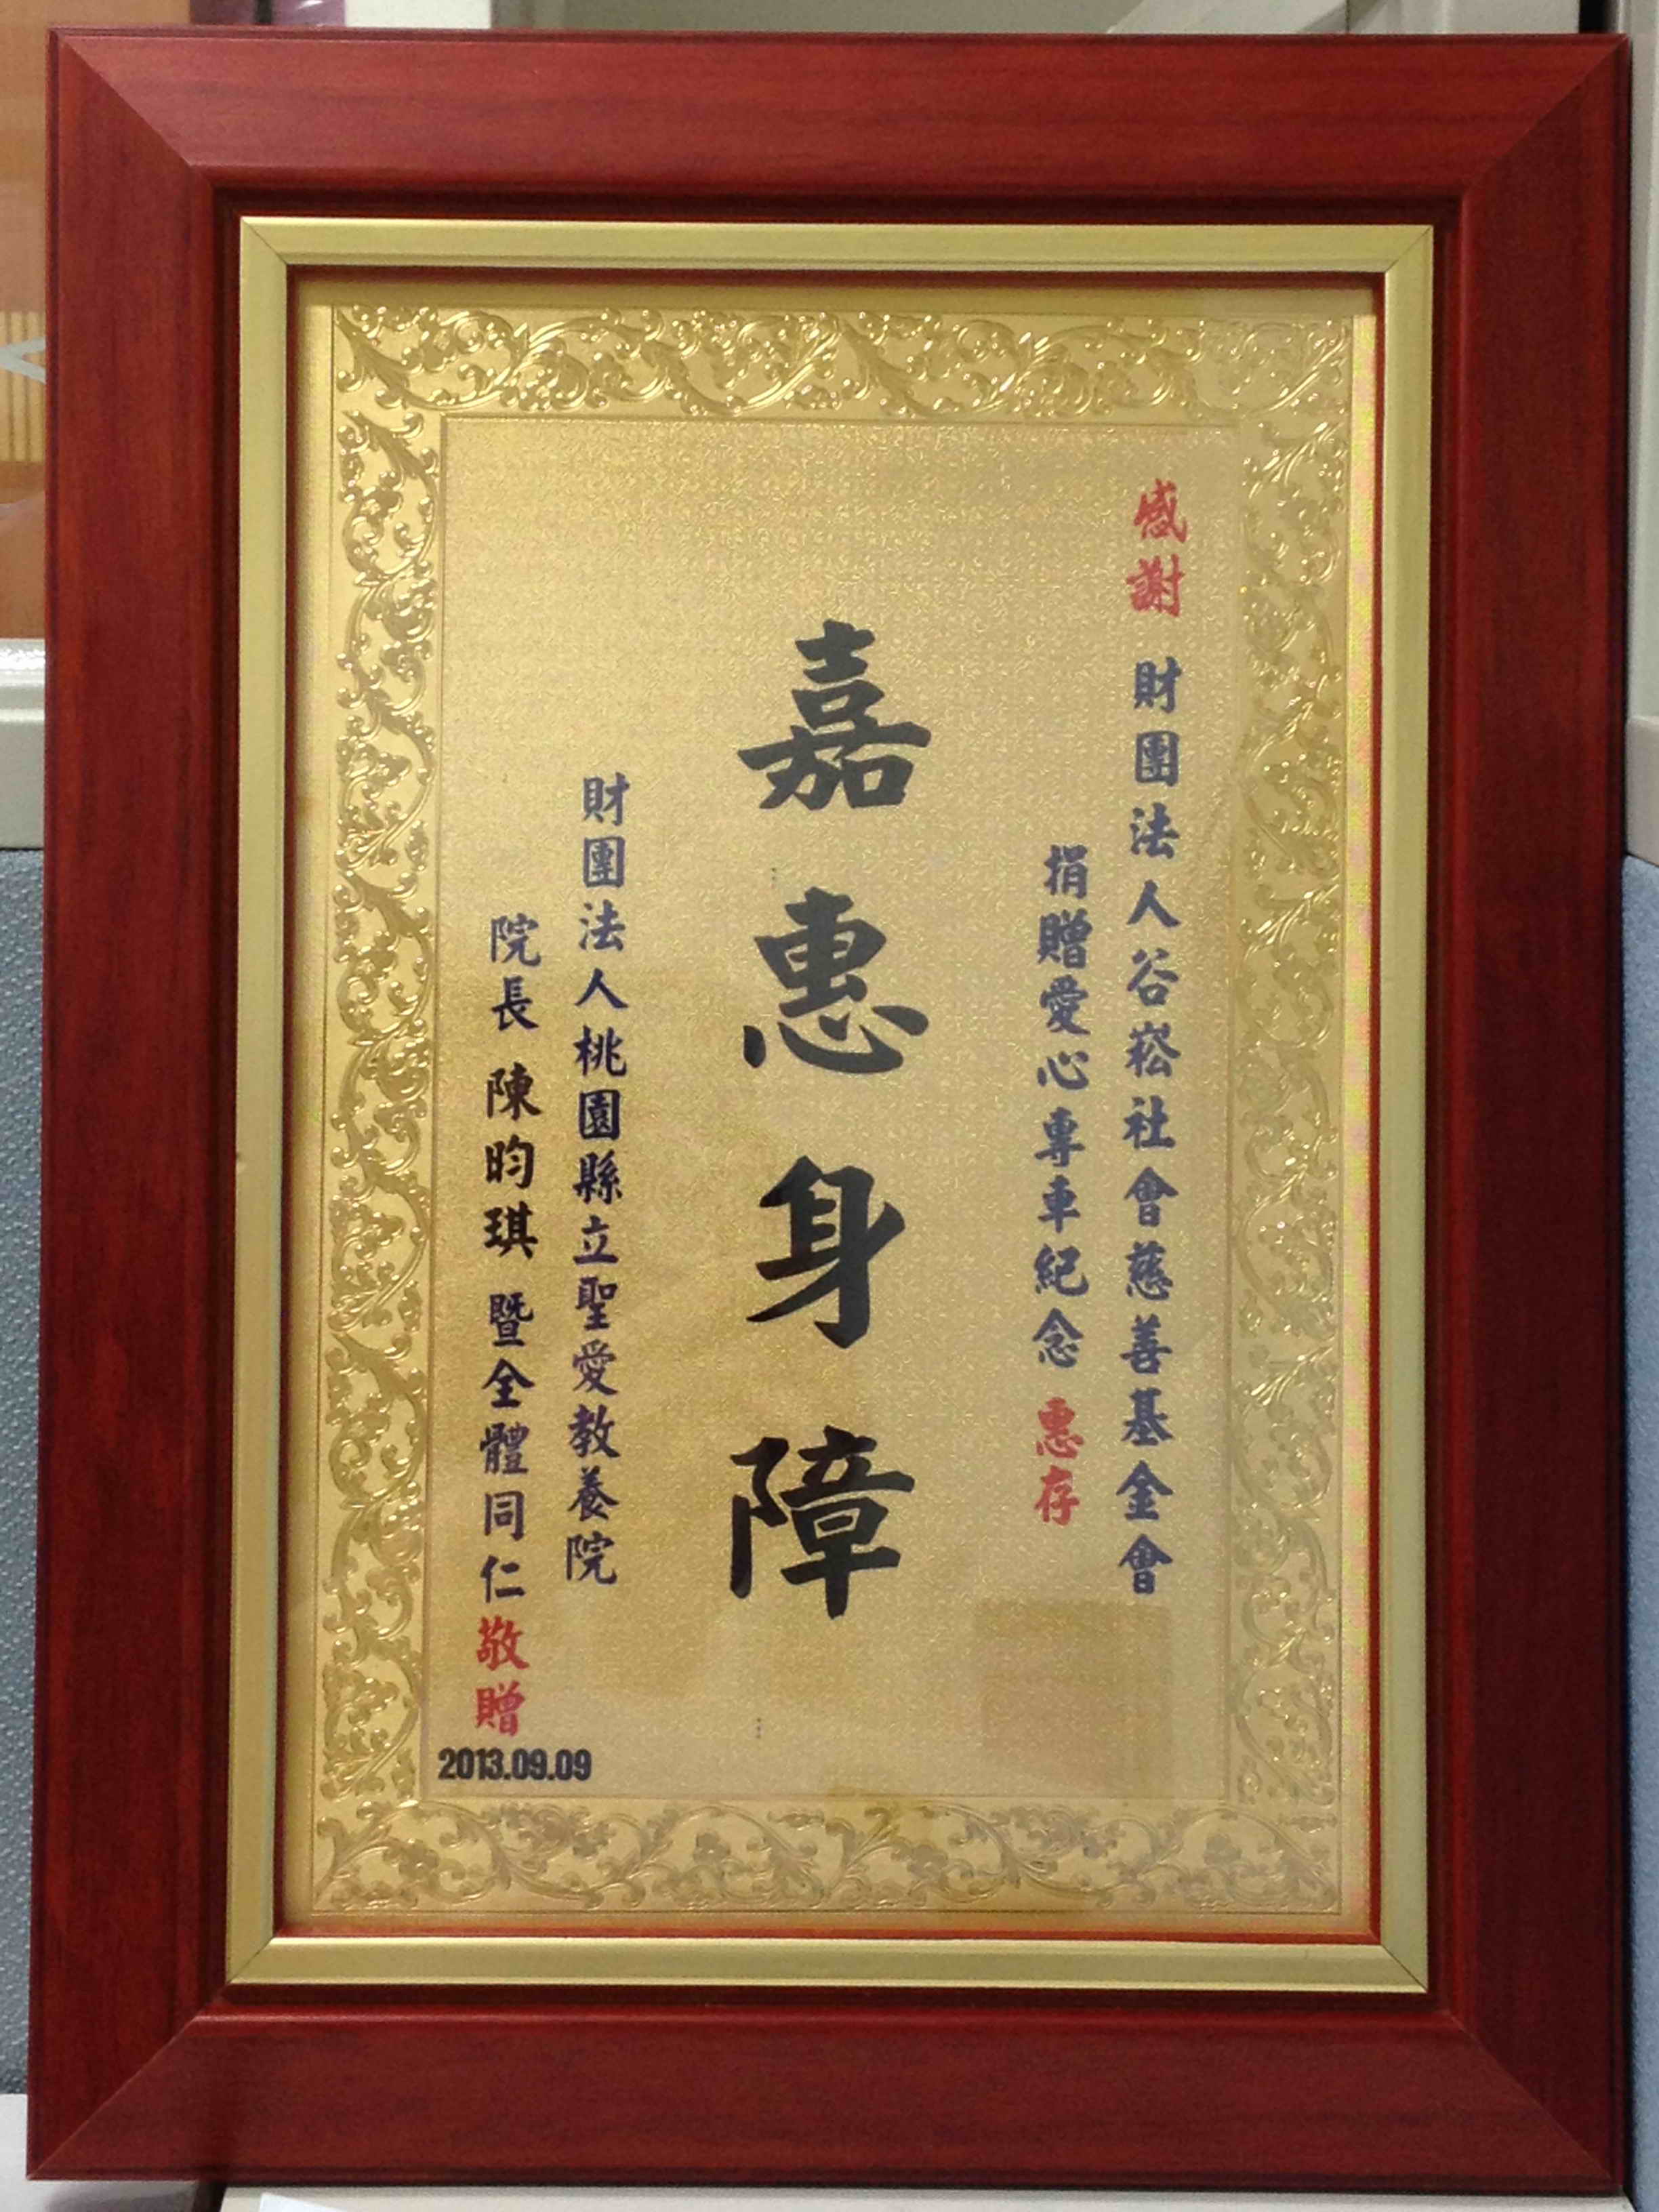 感謝 財團法人谷崧社會慈善基金會
捐贈愛心專車紀念 惠存
嘉惠身障
財團法人桃園縣立聖愛教養院
院長 陳昀琪 暨全體同仁敬贈
2013.09.09